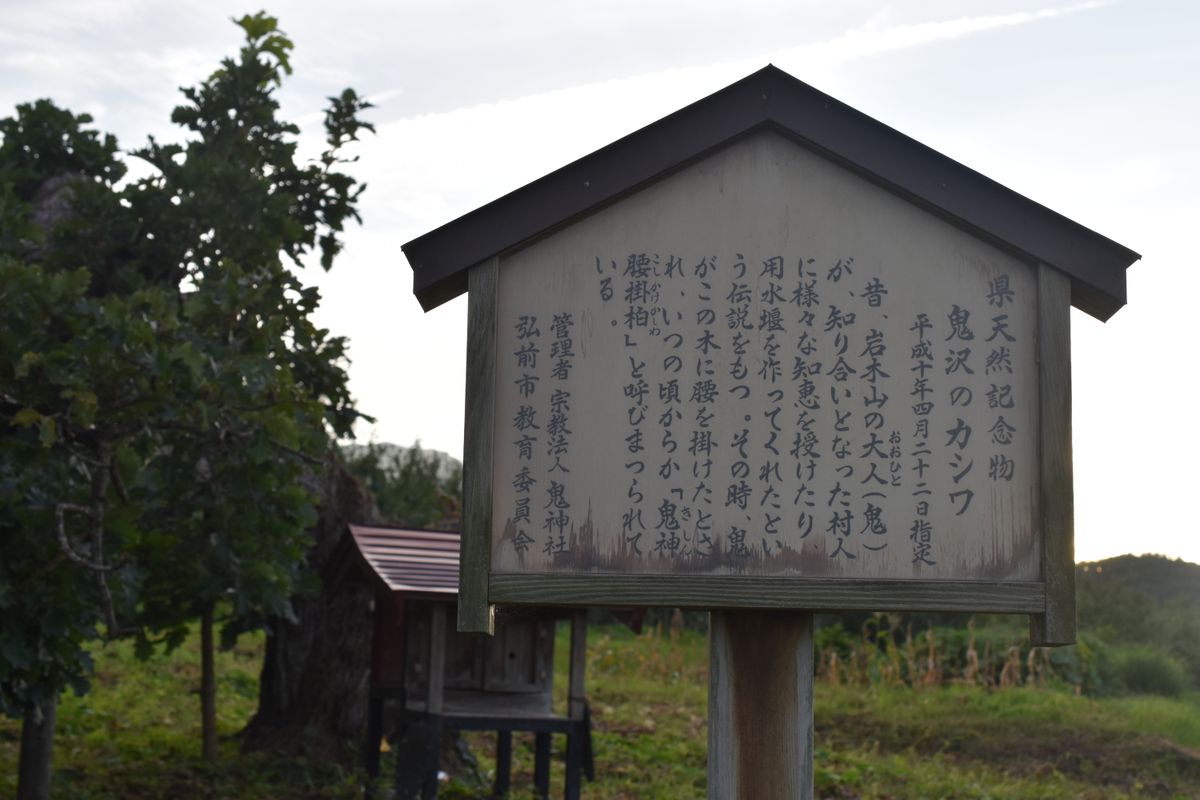 県天然記念物
鬼沢のカシワ
平成十年四月二十二日指定
昔、岩木山の大人（鬼）
おおひと
が、知り合いとなった村人
に様々な知恵を授けたり、
用水堰を作ってくれたとい
う伝説をもつ。その時、鬼
がこの木に腰を掛けたとさ
れ、いつの頃からか「鬼神
きしん
腰掛柏」と呼びまつられて
こしかけかしわ
いる。
管理者 宗教法人 鬼神社
弘前市教育委員会